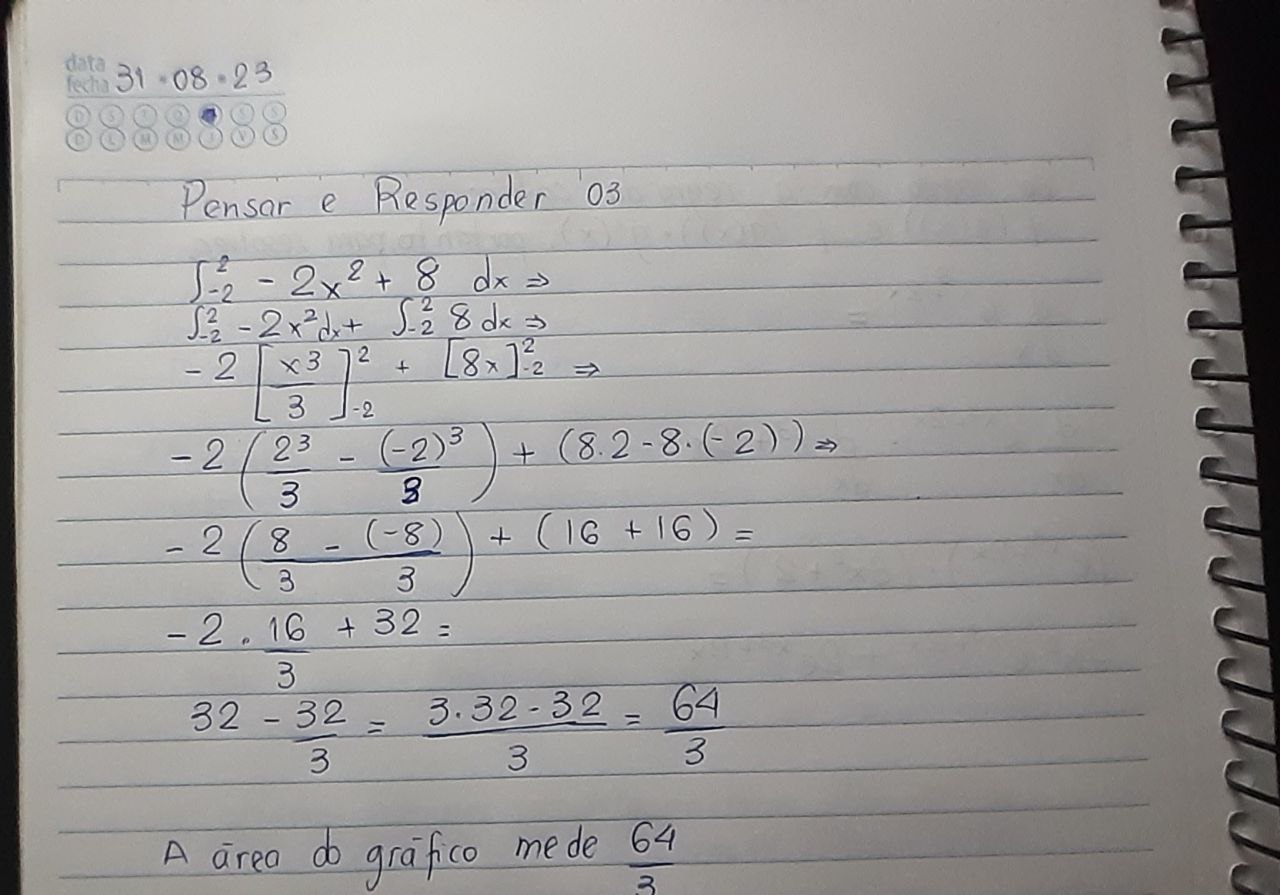 data
fecha 31 · 08 · 23
D S T Q S S
D L M M J V S
Pensar e Responder 03
∫₋₂² - 2x² + 8 dx ⇒
∫₋₂² - 2x² dx + ∫₋₂² 8 dx ⇒
- 2 [x³/3]₋₂² + [8x]₋₂² ⇒
- 2 (2³/3 - (-2)³/3) + (8.2 - 8.(-2)) ⇒
- 2 (8/3 - (-8)/3) + (16 + 16) =
- 2 . 16/3 + 32 =
32 - 32/3 = (3.32 - 32)/3 = 64/3
A área do gráfico mede 64/3